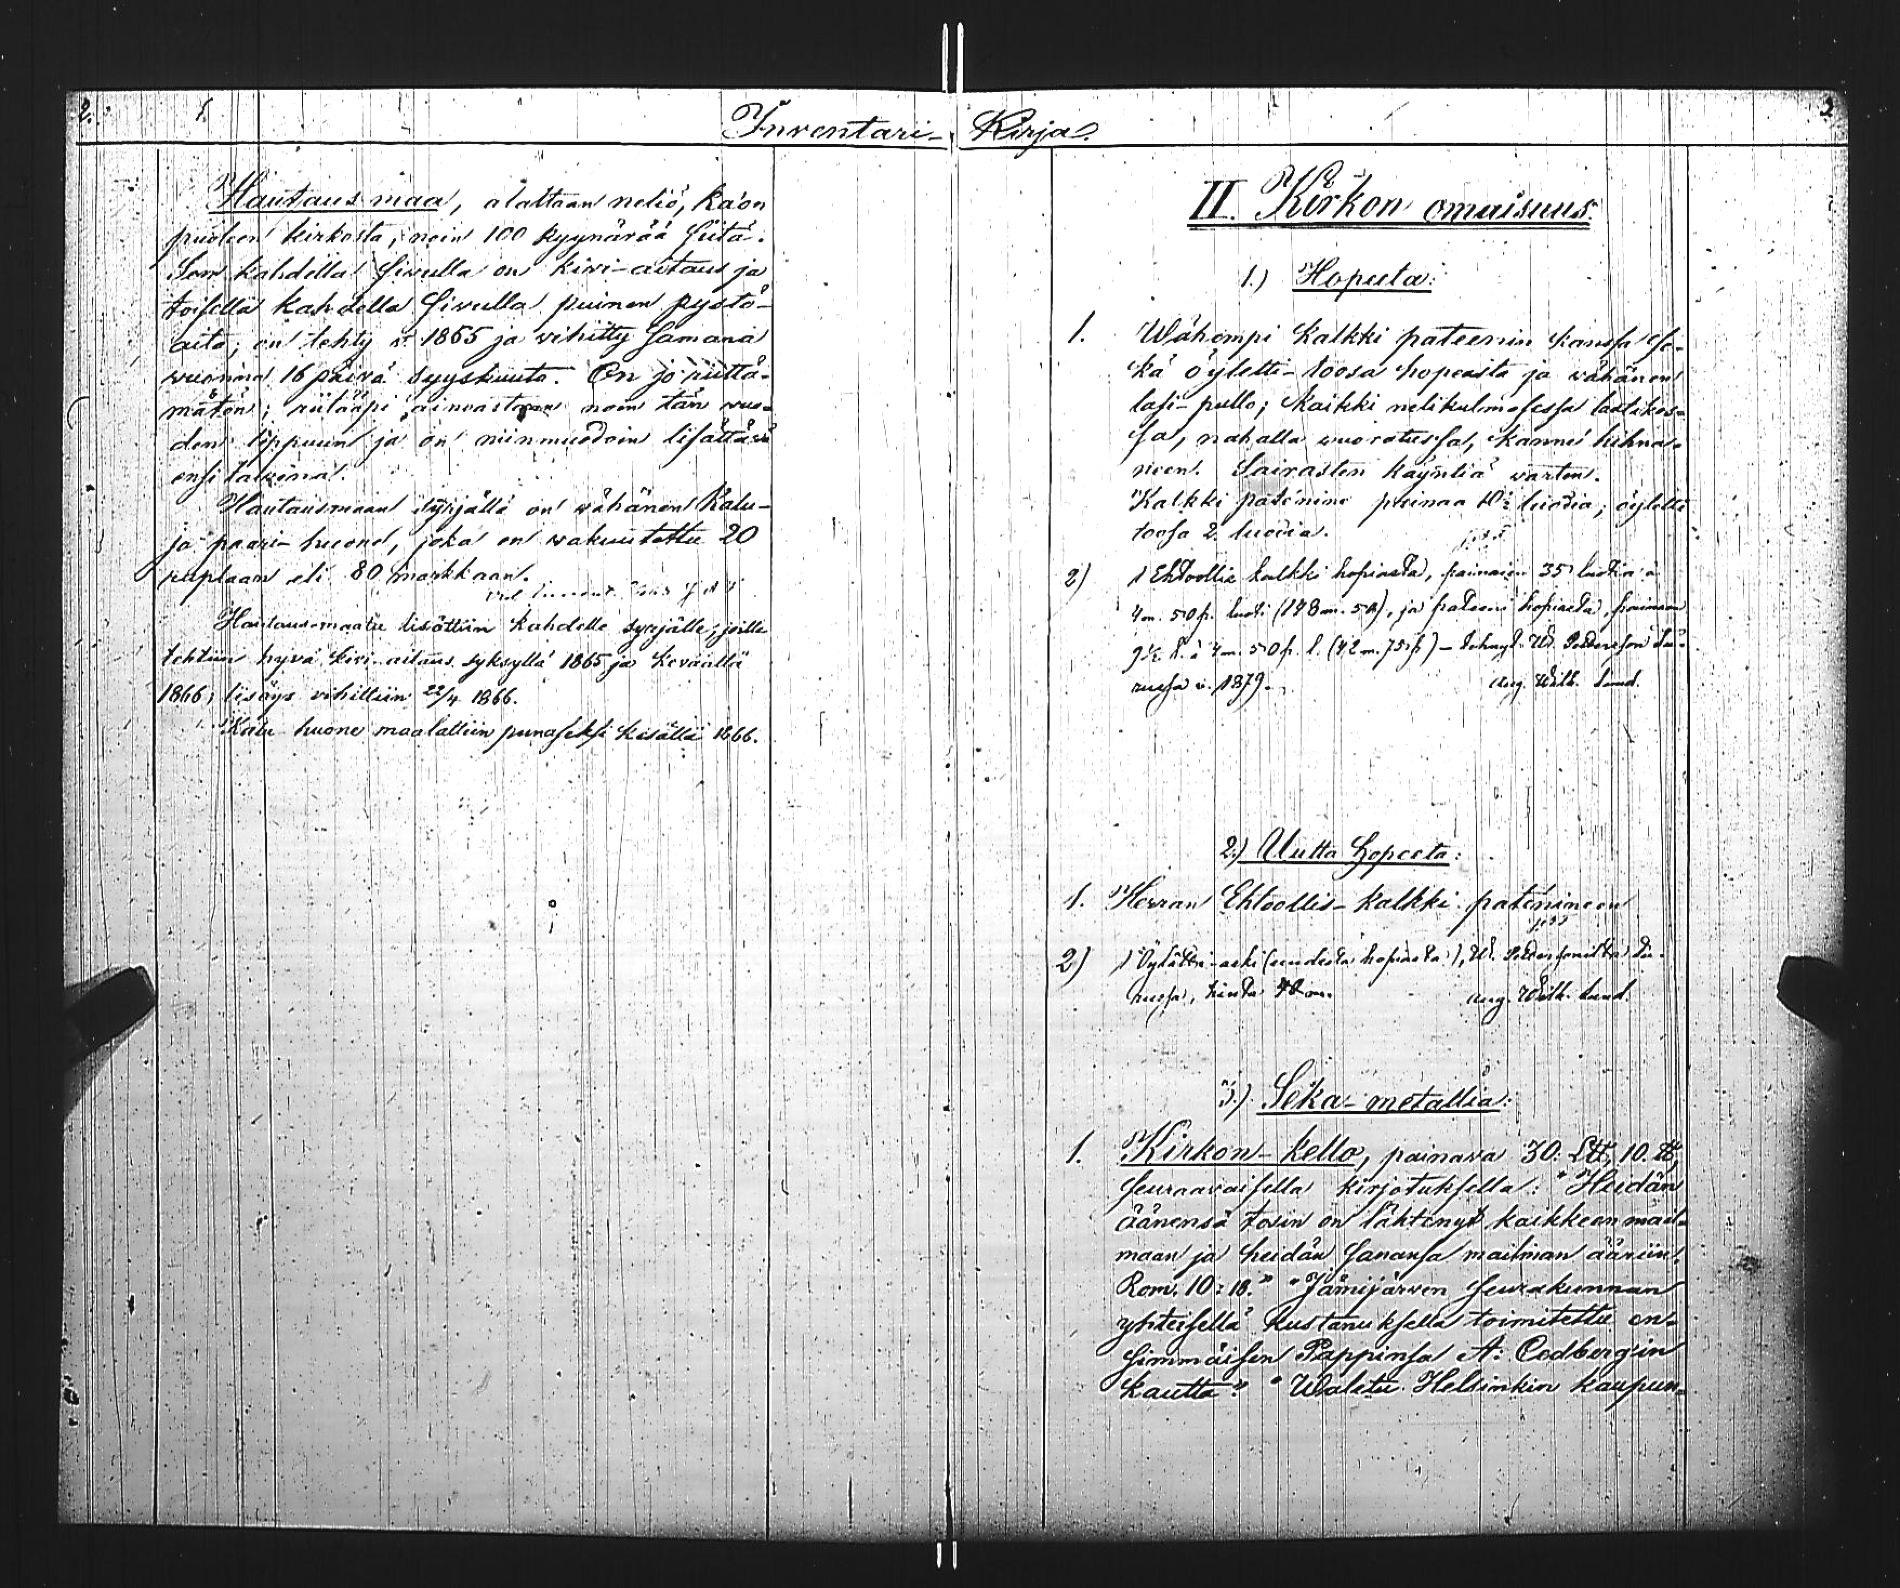 2. 1. 3
Inventari-Kirja.
Hautausmaa, alaltaan neliö, itäön
puoleen kirkosta, noin 100 kyynärää siitä.
Sen kahdella sivulla on kivi-aitaus ja
toisella kahdella sivulla puinen pysty-
aita; on tehty v. 1865 ja vihitty samana
vuonna 16 päivä syyskuuta. On jo riittä-
mätön; riitääpi ainoastaan noin tän vuo-
den loppuun ja on niinmuodoin lisättävä
ensi talvena.
Hautausmaan syrjällä on vähänen kalu-
ja paari-huone, joka on vakuutettu 20
ruplaan eli 80 markkaan.
Hautausmaata lisättiin kahdelle syrjälle, joille
tehtiin hyvä kivi-aitaus syksyllä 1865 ja keväällä
1866; lisäys vihittiin 22/4 1866.
Kalu-huone maalattiin punaseksi kesällä 1866.
II. Kirkon omaisuus.
1.) Hopeeta:
1. Wähempi kalkki pateenin kanssa se-
kä öyletti-toosa hopeasta ja vähänen
lasi-pullo; kaikki nelikulmasessa laatikos-
sa, nahalla vuoratussa, kanne hihna-
neen. Sairasten käyntiä varten.
Kalkki patenine painaa 10½ luodia; öyletti
toosa 2 luodia.
2) 1 Ehtoollis kalkki hopiasta, painaien 35 luotia à
4 m. 50 p. luoti (148 m. 50), ja pateeni hopiasta, painaen
9½ l. à 4 m. 50 p. l. (42 m. 75 p) - tehnyt W. Pettersson Tu-
russa v. 1879. Aug. Wilh. Lund.
2.) Uutta hopeeta:
1. Herran Ehtoollis-kalkki patenineen
2) 1 Öylätti-aski (uudesta hopiasta), W. Petterssonilta Tu-
russa, hinta 48 m. Aug. Wilh. Lund.
3.) Seka-metallia:
1. Kirkon-kello, painava 30: L℔, 10. ℔,
seuraavaisella kirjotuksella: "Heidän
äänensä tosin on lähtenyt kaikkeen mail-
maan ja heidän sanansa mailman ääriin.
Rom. 10:18." "Jämijärven seurakunnan
yhteisellä kustanuksella toimitettu en-
simmäisen Pappinsa A: Cedberg'in
kautta." "Waletu Helsinkin kaupun-